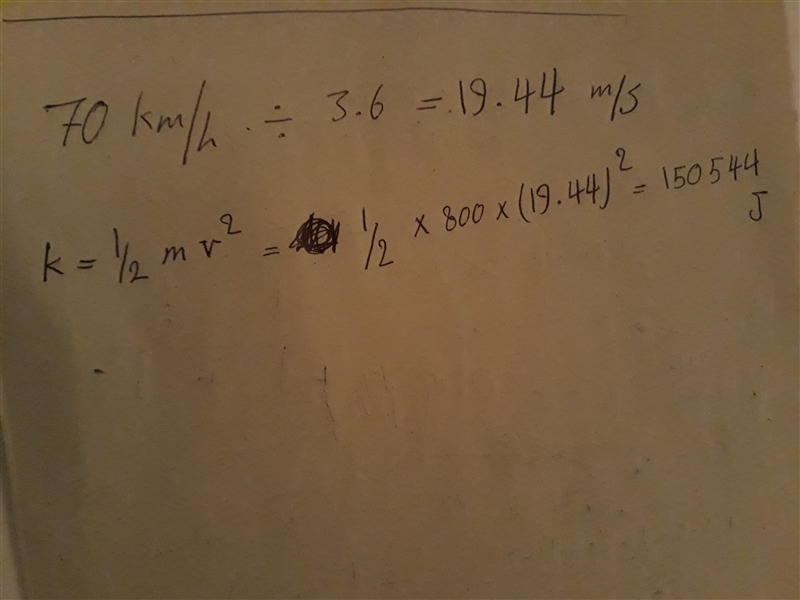 70 km/h ÷ 3.6 = 19.44 m/s
k = 1/2 m v² = 1/2 × 800 × (19.44)² = 150544 J